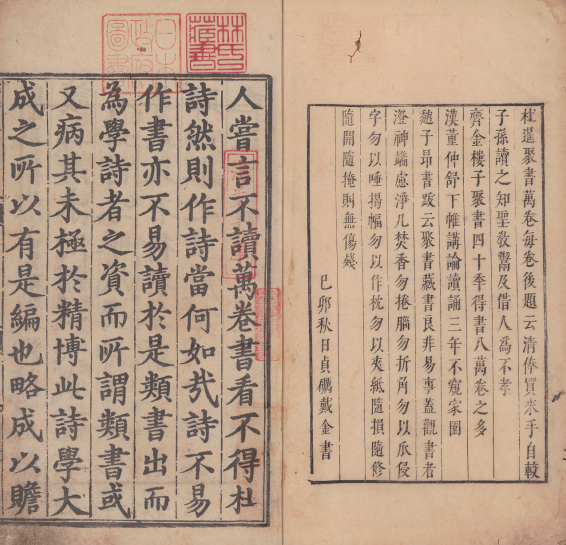 杜暹聚書萬卷每卷後題云清俸買來手自較
子孫讀之知聖敎鬻及借人爲不孝
齊金樓子聚書四十季得書八萬卷之多
漢董仲舒下帷講論讀誦三年不窺家園
趙子昂書跋云聚書藏書良非易事蓋觀書者
澄神端慮淨几焚香勿捲腦勿折角勿以爪侵
字勿以唾揭幅勿以作枕勿以夾紙隨損隨修
隨開隨掩則無傷殘
巳卯秋日貞礪戴金書
林氏
藏書
日本
政府
圖書
人嘗言不讀萬卷書看不得杜
詩然則作詩當何如㢤詩不易
作書亦不易讀於是類書出而
為學詩者之資而所謂類書或
又病其未極於精博此詩學大
成之所以有是編也略成以贍